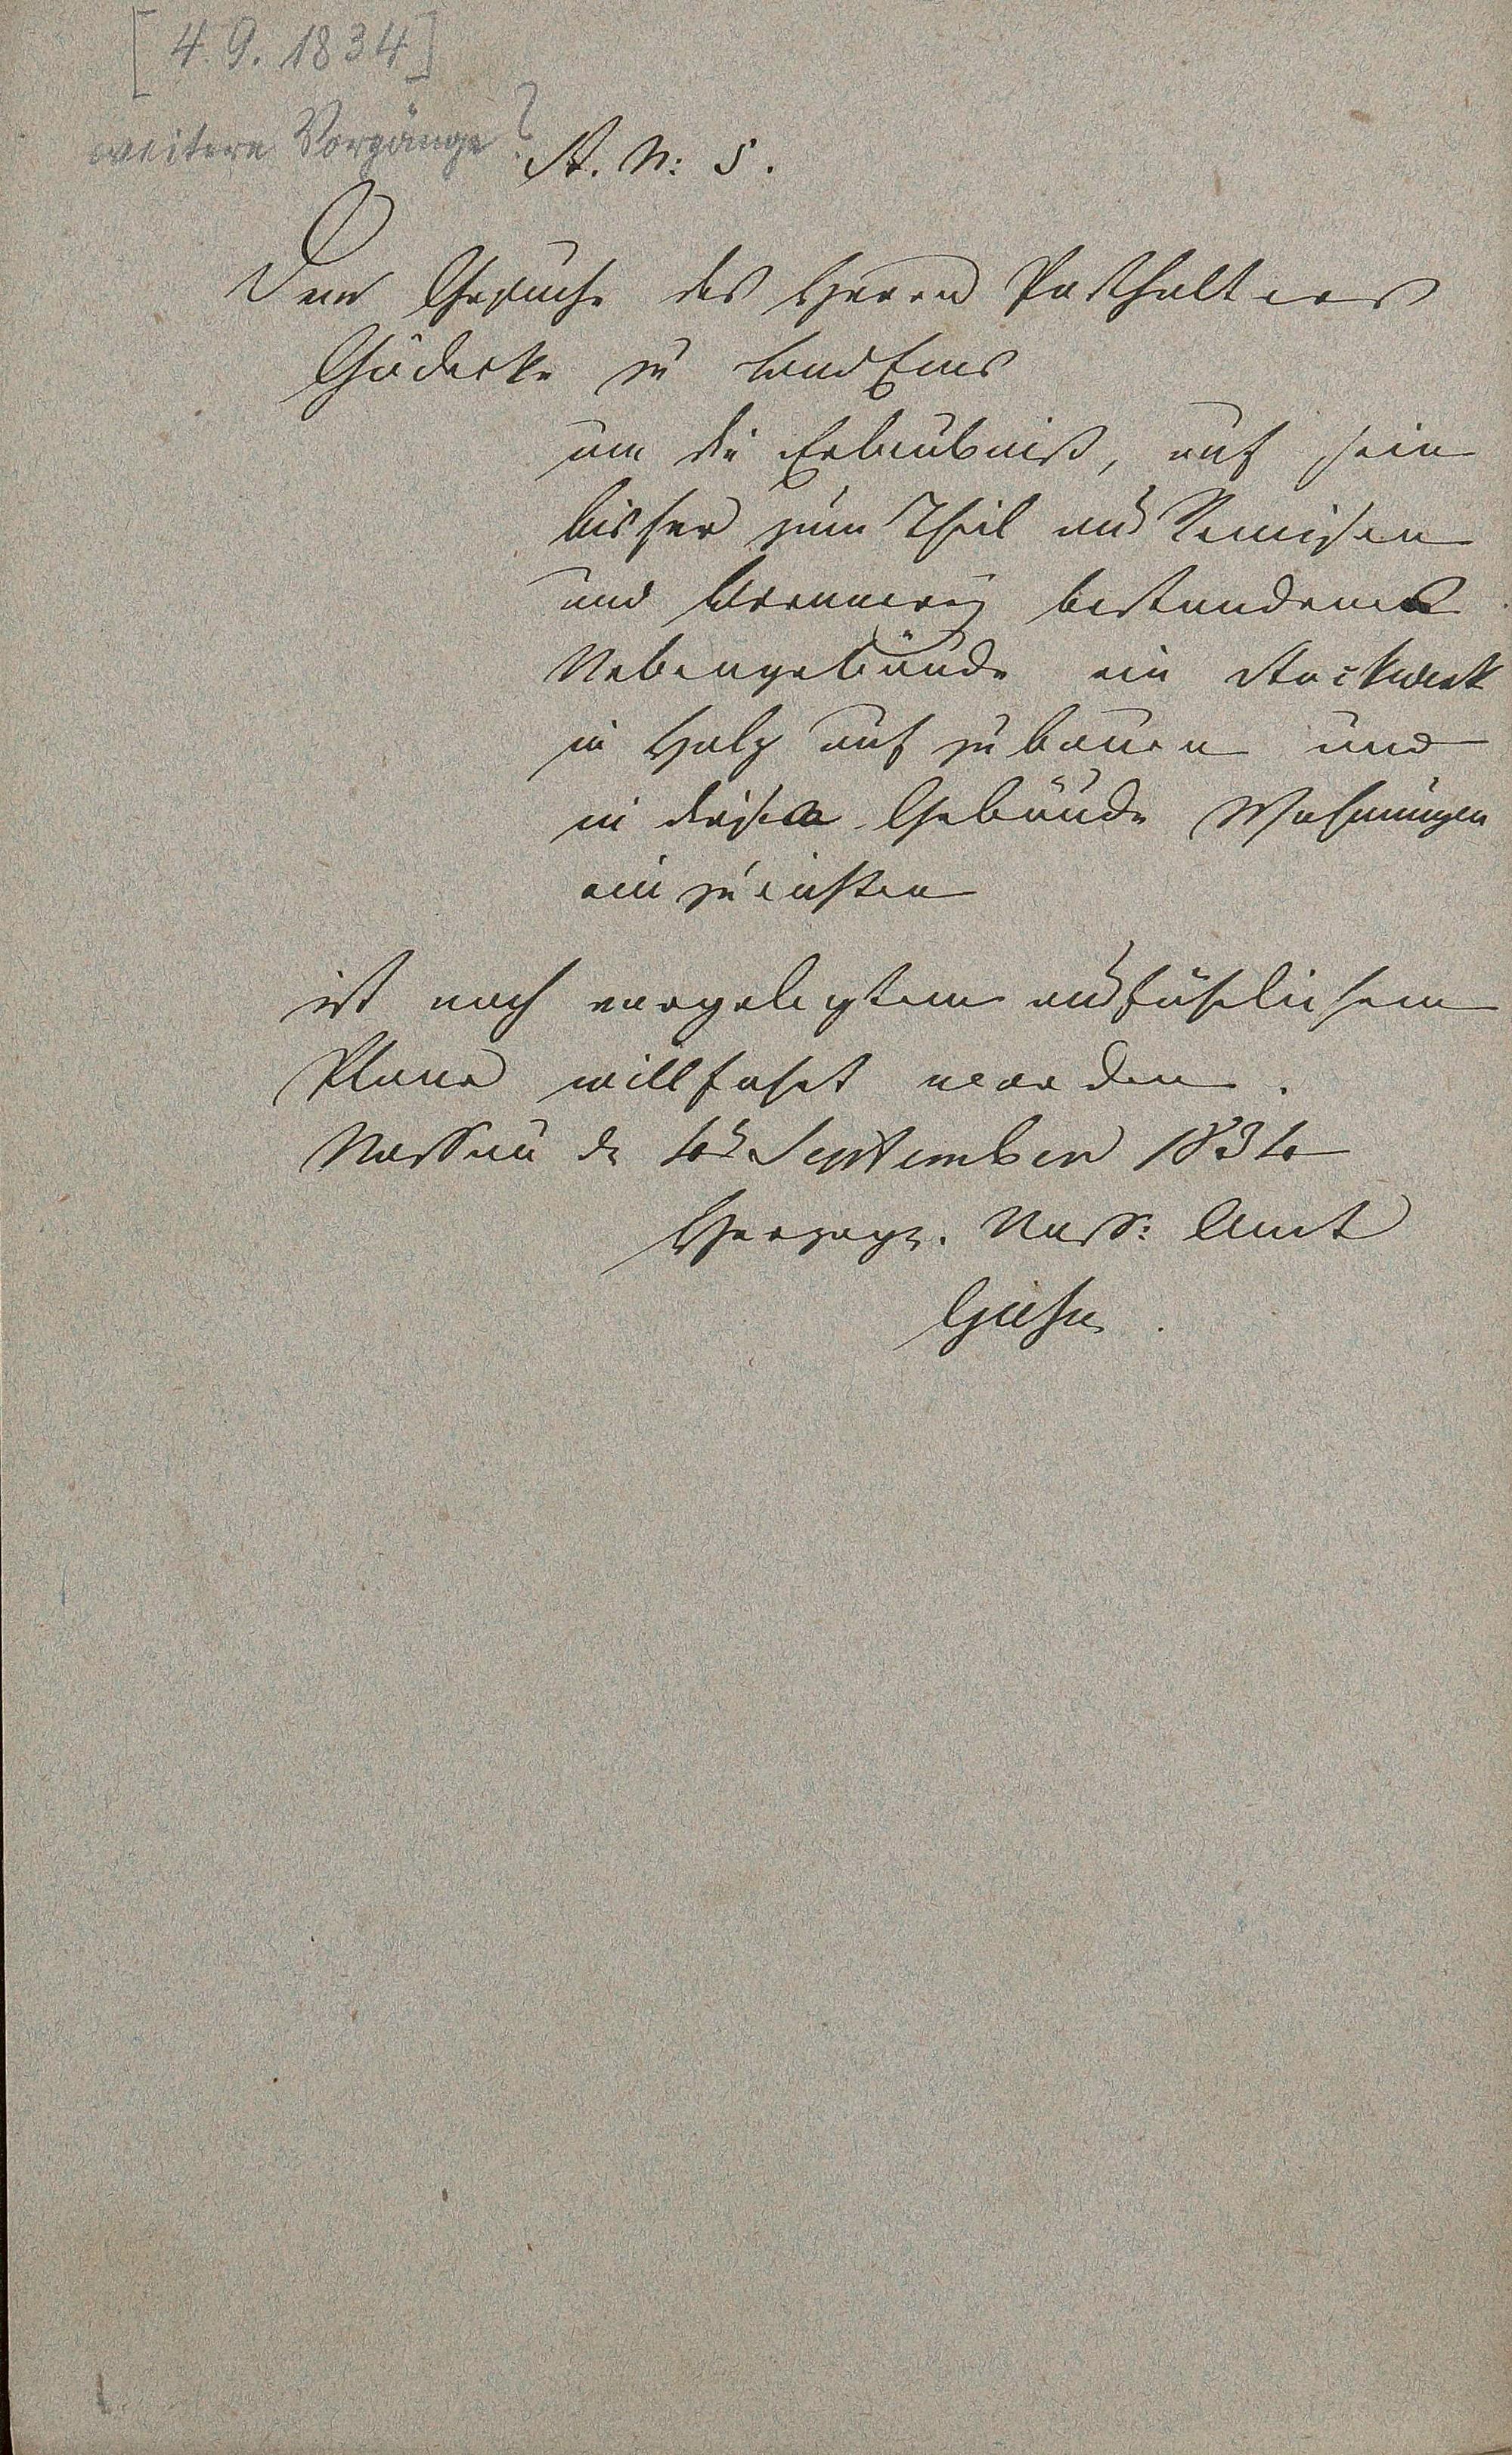 [4.9.1834]
weitere Vorgänge?
A. N: 5.
Dem Gesuche des Herrn Posthalters
Gödecke zu Bad Ems
um die Erlaubniß, auf sein
bisher zum Theil aus Remisen
und Brennerey bestandenes
Nebengebäude ein Stockwerk
in Holz auf zu bauen und
in diesem Gebäude Wohnungen
ein zu richten
ist nach vorgelegtem ausführlichem
Plane willfahrt worden.
Nassau d. 4ten September 1834
Herzogl. Nass: Amt